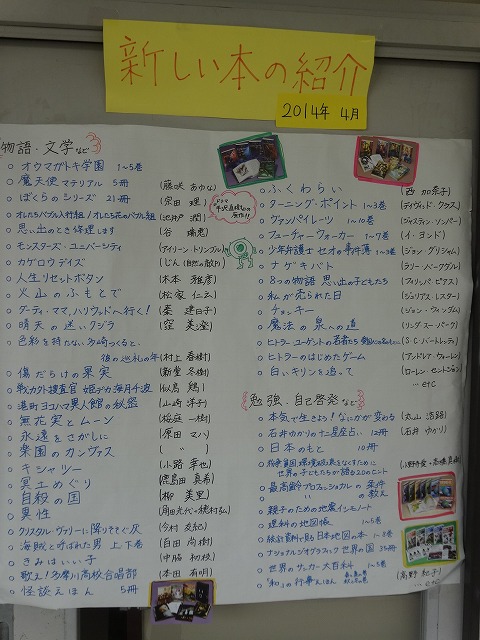 新しい本の紹介
2014年 4月
物語・文学など
○ オウマガトキ学園 1~5巻
○ 魔天使マテリアル 5冊 (藤咲 あゆな)
○ ぼくらのシリーズ 21冊 (宗田 理)
○ オレたちバブル入行組/オレたち花のバブル組 (池井戸 潤)
ドラマ 半沢直樹の原作!!
○ 思い出のとき修理します (谷 瑞恵)
○ モンスターズ・ユニバーシティ (アイリーン・トリンブル)
○ カゲロウデイズ (じん(自然の敵P))
○ 人生リセットボタン (木本 雅彦)
○ 火山のふもとで (松家 仁之)
○ ダーティ・ママ、ハリウッドへ行く! (秦 建日子)
○ 晴天の迷いクジラ (窪 美澄)
○ 色彩を持たない多崎つくると、
彼の巡礼の年 (村上 春樹)
○ 傷だらけの果実 (新堂 冬樹)
○ 戦力外捜査官 姫デカ・海月千波 (似鳥 鶏)
○ 港町ヨコハマ異人館の秘密 (山崎 洋子)
○ 無花果とムーン (桜庭 一樹)
○ 永遠をさがしに (原田 マハ)
○ 楽園のカンヴァス ( 〃 )
○ キシャツー (小路 幸也)
○ 冥土めぐり (鹿島田 真希)
○ 自殺の国 (柳 美里)
○ 異性 (角田光代・穂村弘)
○ クリスタル・ヴァリーに降りそそぐ灰 (今村 友紀)
○ 海賊と呼ばれた男 上下巻 (百田 尚樹)
○ きみはいい子 (中脇 初枝)
○ 歌え!多摩川高校合唱部 (本田 有明)
○ 怪談えほん 5冊
○ ふくわらい (西 加奈子)
○ ターニング・ポイント 1~3巻 (デイヴィッド・クラス)
○ ヴァンパイレーツ 1~10巻 (ジャスティン・ソンパー)
○ フューチャーウォーカー 1~7巻 (イ・ヨンド)
○ 少年弁護士セオの事件簿 1~3巻 (ジョン・グリシャム)
○ ナゲキバト (ラリー・バークダル)
○ 8つの物語 思い出の子どもたち (フィリパ・ピアス)
○ 私が売られた日 (ジュリアス・レスター)
○ チョッキー (ジョン・ウィンダム)
○ 魔法の泉への道 (リンダ・スー・パーク)
○ ヒトラー・ユーゲントの若者たち (S.C.バートレッティ)
○ ヒトラーのはじめたゲーム (アンドレア・ウォーレン)
○ 白いキリンを追って (ローレン・セントジョン)
... etc
勉強・自己啓発など
○ 本気で生きよう!なにかが変わる (丸山 浩路)
○ 石井ゆかりの十二星座占い 12冊 (石井 ゆかり)
○ 日本のもと 10冊
○ 戦争・貧困・環境破壊をなくすために
世界の子どもたちが語る20のヒント
○ 最高齢プロフェッショナルの条件
○ 〃 の教え
○ 親子のための地震イツモノート
○ 理科の地図帳 1~5巻
○ 統計資料が語る日本地図の本 1~8巻
○ ナショナルジオグラフィック 世界の国 35冊
○ 世界のサッカー大百科 1~5巻
○ 「和」の行事えほん (高野 紀子)
... etc